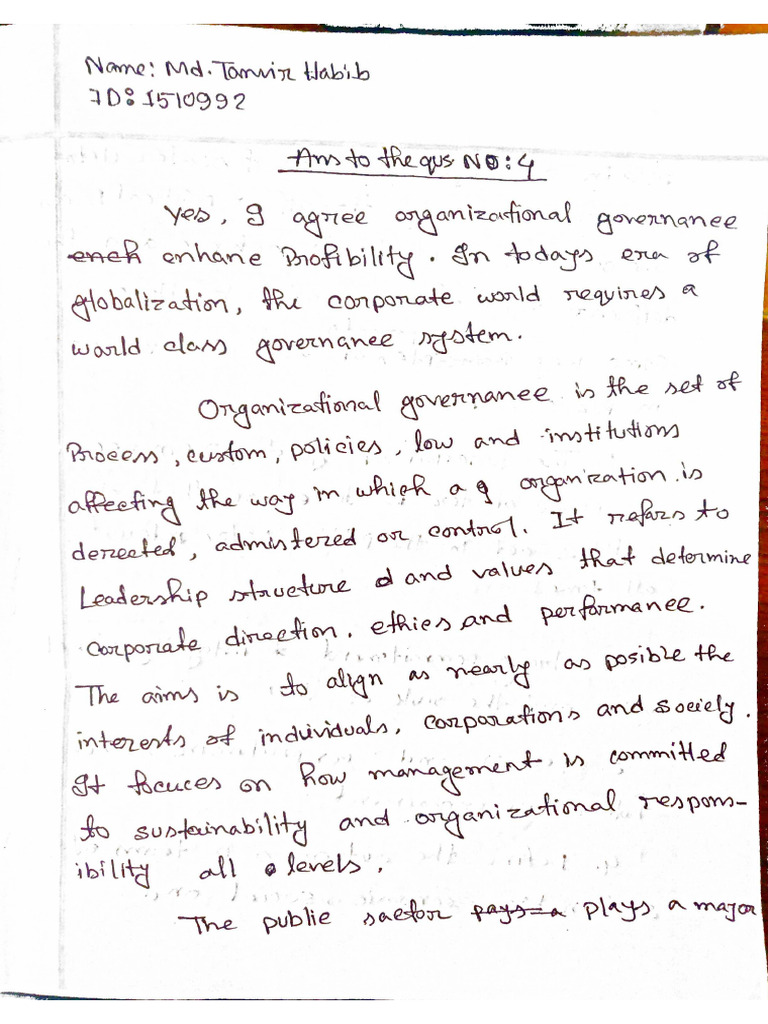 Name: Md. Tanvir Habib
ID: 1510992
Ans to the qus NO: 4
Yes, I agree organizational governance
ench enhane Profibility. In todays era of
globalization, the corporate world requires a
world class governance system.
Organizational governance is the set of
Process, custom, policies, low and institutions
affecting the way in which a g organization is
derected, adminstered or control. It refars to
Leadership structure d and values that determine
corporate direction, ethics and performance.
The aims is to align as nearly as posible the
interests of individuals, corporations and society.
It focuces on how management is committed
to sustainability and organizational respons-
ibility all levels.
The public saetor pays a plays a major